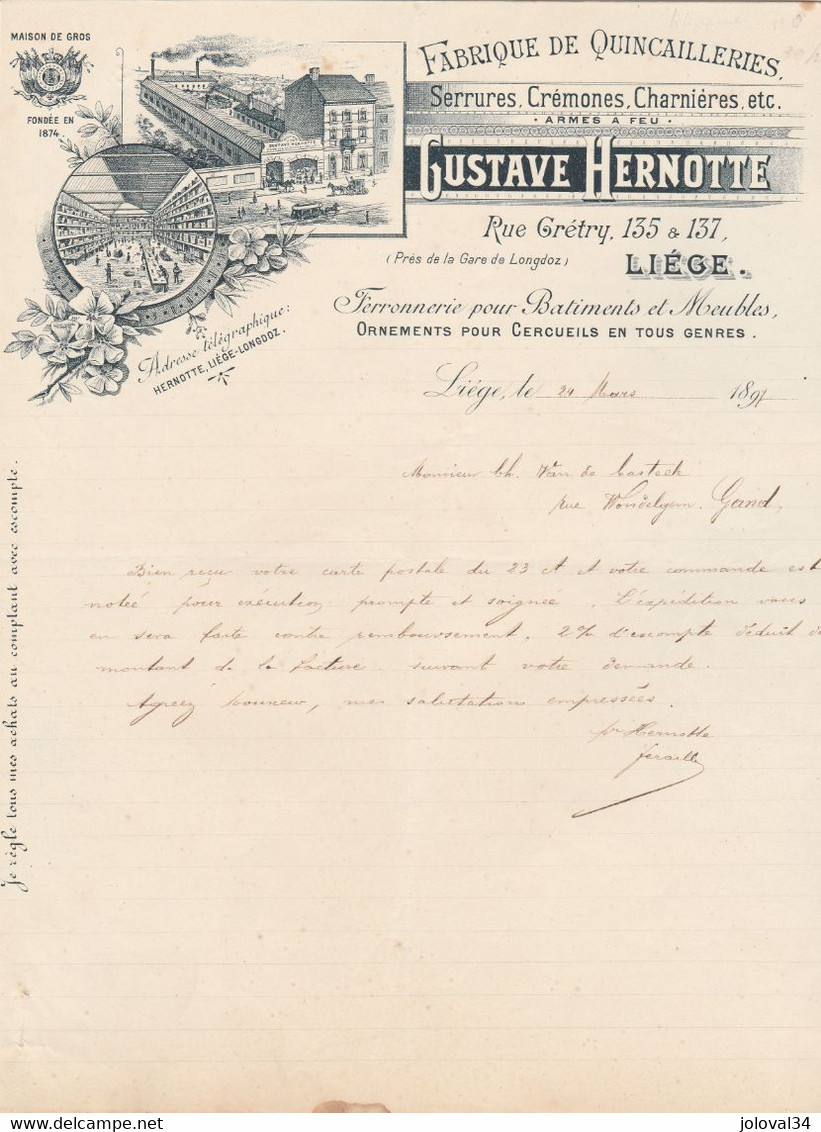 MAISON DE GROS
FONDÉE EN
1874
GUSTAVE HERNOTTE
FABRIQUE DE QUINCAILLERIES,
Serrures, Crémones, Charnières, etc.
• ARMES A FEU •
GUSTAVE HERNOTTE
Rue Grétry, 135 & 137,
(Près de la Gare de Longdoz)
LIÉGE.
Ferronnerie pour Batiments et Meubles,
ORNEMENTS POUR CERCUEILS EN TOUS GENRES.
Adresse télégraphique:
HERNOTTE, LIÉGE-LONGDOZ.
Liége, le 24 Mars 1897
Monsieur Ch. Van de Casteele
rue Wondelgem. Gand,
Bien reçu votre carte postale du 23 ct et votre commande est
notée pour exécution prompte et soignée. L'expédition vous
en sera faite contre remboursement, 2% d'escompte déduit du
montant de la facture suivant votre demande.
Agréez Monsieur, mes salutations empressées.
pr Hernotte
Je règle tous mes achats au comptant avec escompte.
delcampe.net
joloval34